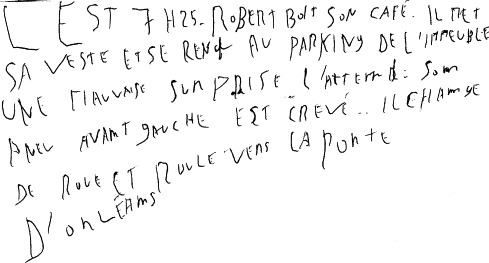 C'EST 7H25. ROBERT BOIT SON CAFÉ. IL MET
SA VESTE ET SE REND AU PARKING DE L'IMMEUBLE
UNE MAUVAISE SURPRISE L'ATTEND: SON
PNEU AVANT GAUCHE EST CREVÉ.. IL CHANGE
DE ROUE ET ROULE VERS LA PORTE
D'ORLÉANS